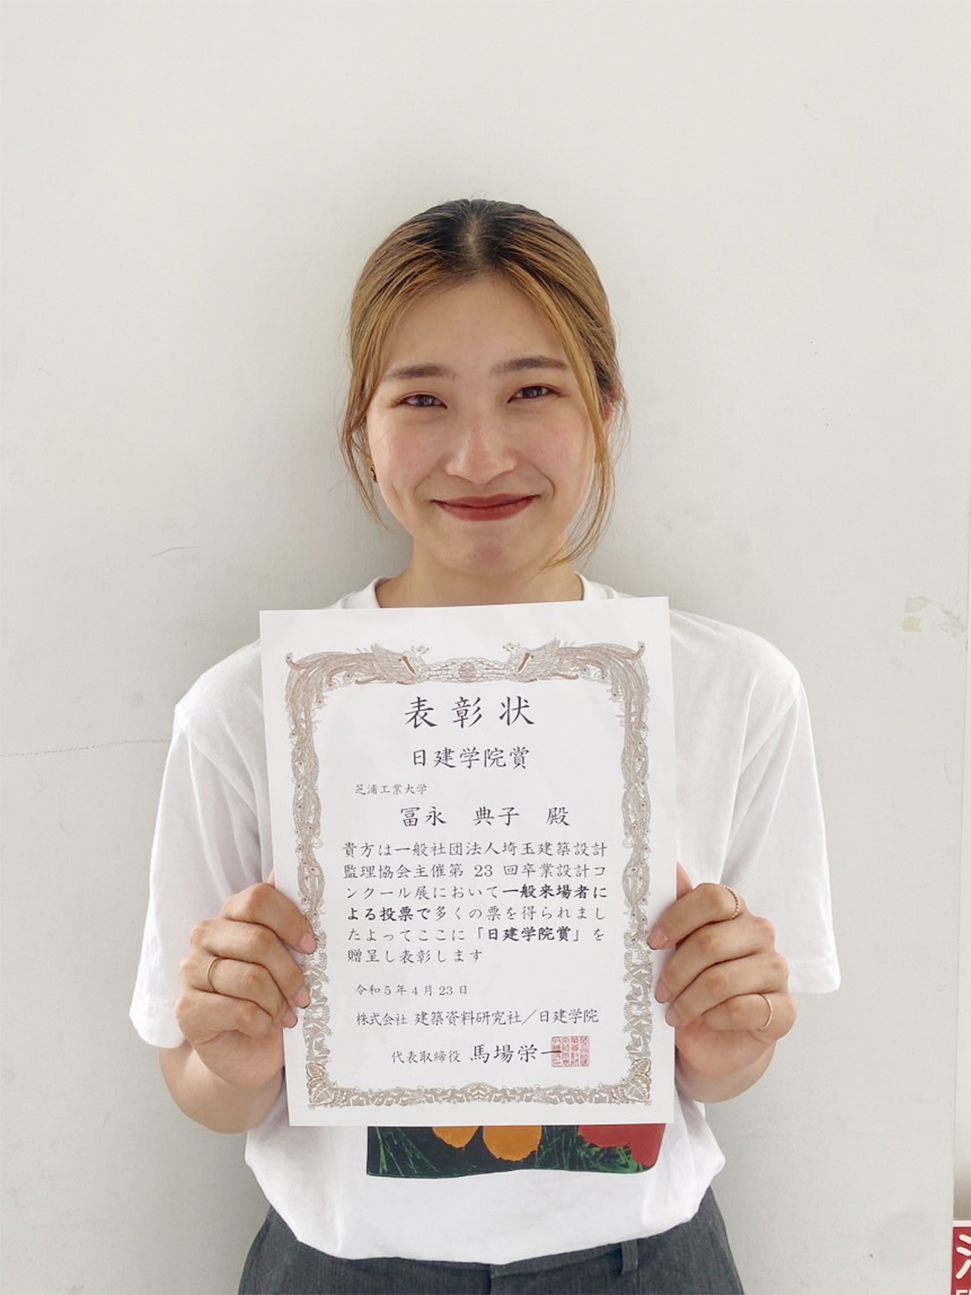 表彰状
日建学院賞
芝浦工業大学
冨永 典子 殿
貴方は一般社団法人埼玉建築設計
監理協会主催第 23 回卒業設計コ
ンクール展において一般来場者に
よる投票で多くの票を得られまし
たよってここに「日建学院賞」を
贈呈し表彰します
令和5年4月23日
株式会社 建築資料研究社／日建学院
代表取締役 馬場栄一